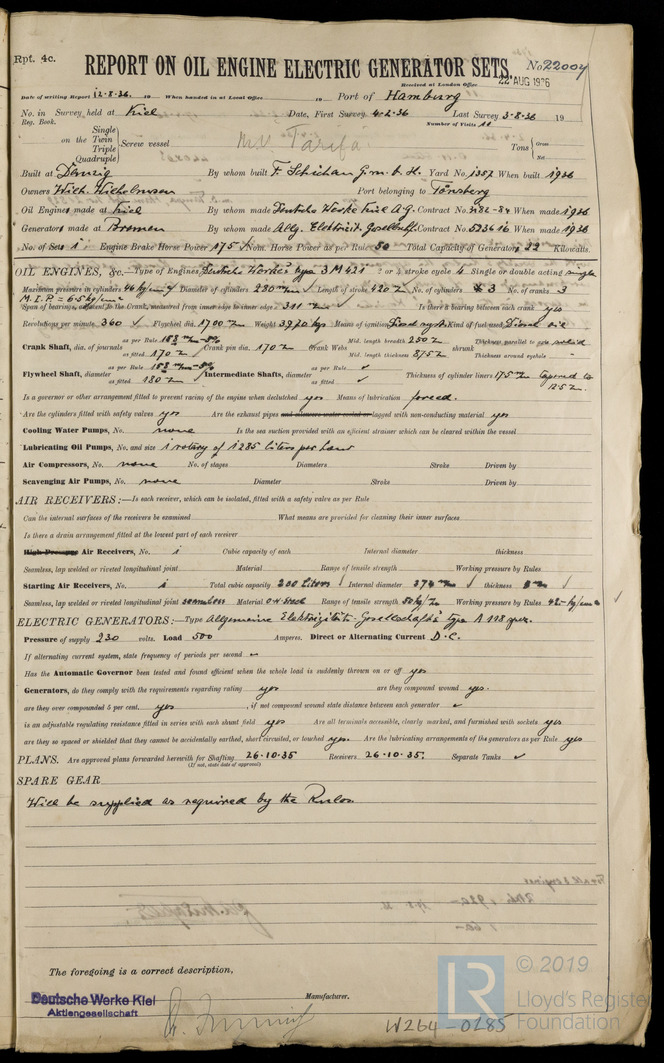 Rpt. 4c.
REPORT ON OIL ENGINE ELECTRIC GENERATOR SETS. No 22004
Received at London Office 22 AUG 1936
Date of writing Report 12.8.36. 19 When handed in at Local Office 19 Port of Hamburg
No. in Survey held at Kiel Date, First Survey 4-2-36 Last Survey 3-8-36 19
Reg. Book. Number of Visits
Single
on the Twin
Triple
Quadruple
Screw vessel M.V. Tarifa
Tons Gross
Net
Built at Danzig By whom built F. Schichau G.m.b.H. Yard No. 1357 When built 1936
Owners Wilh. Wilhelmsen Port belonging to Tönsberg
Oil Engines made at Kiel By whom made Deutsche Werke Kiel A.G. Contract No. 3482-84 When made 1936
Generators made at Bremen By whom made Allg. Elektricit. Gesellsch. Contract No. When made 1936
No. of Sets 1 Engine Brake Horse Power 175 Nom. Horse Power as per Rule 50 Total Capacity of Generators Kilowatts.
OIL ENGINES, &c.—Type of Engines Deutsche Werke's type 3 M 421 2 or 4 stroke cycle 4 Single or double acting single
Maximum pressure in cylinders Diameter of cylinders 280 m/m Length of stroke 420 No. of cylinders 3 No. of cranks 3
M.I.P. = 6.5 kg/cm²
Span of bearings, adjacent to the Crank, measured from inner edge to inner edge Is there a bearing between each crank yes
Revolutions per minute 360 Flywheel dia. 1700 Weight Means of ignition Kind of fuel used Diesel oil
Crank Shaft, dia. of journals as per Rule as fitted 170 Crank pin dia. 170 Crank Webs Mid. length breadth 250 Mid. length thickness shrunk Thickness parallel to axis solid Thickness around eyehole
Flywheel Shaft, diameter as per Rule as fitted 180 Intermediate Shafts, diameter as per Rule as fitted Thickness of cylinder liners tapered to
Is a governor or other arrangement fitted to prevent racing of the engine when declutched yes Means of lubrication forced.
Are the cylinders fitted with safety valves yes Are the exhaust pipes and silencers water cooled or lagged with non-conducting material yes
Cooling Water Pumps, No. none Is the sea suction provided with an efficient strainer which can be cleared within the vessel
Lubricating Oil Pumps, No. and size 1 rotary of 1285 liters per hour
Air Compressors, No. none No. of stages Diameters Stroke Driven by
Scavenging Air Pumps, No. none Diameter Stroke Driven by
AIR RECEIVERS:—Is each receiver, which can be isolated, fitted with a safety valve as per Rule
Can the internal surfaces of the receivers be examined What means are provided for cleaning their inner surfaces
Is there a drain arrangement fitted at the lowest part of each receiver
High Pressure Air Receivers, No. 1 Cubic capacity of each Internal diameter thickness
Seamless, lap welded or riveted longitudinal joint Material Range of tensile strength Working pressure by Rules
Starting Air Receivers, No. 1 Total cubic capacity 200 liters Internal diameter thickness
Seamless, lap welded or riveted longitudinal joint seamless Material Range of tensile strength Working pressure by Rules
ELECTRIC GENERATORS:—Type Allgemeine Elektrizitäts Gesellschaft's type A
Pressure of supply 230 volts. Load 500 Amperes. Direct or Alternating Current D.C.
If alternating current system, state frequency of periods per second
Has the Automatic Governor been tested and found efficient when the whole load is suddenly thrown on or off yes
Generators, do they comply with the requirements regarding rating yes are they compound wound yes.
are they over compounded 5 per cent. yes , if not compound wound state distance between each generator
is an adjustable regulating resistance fitted in series with each shunt field yes Are all terminals accessible, clearly marked, and furnished with sockets yes
are they so spaced or shielded that they cannot be accidentally earthed, short circuited, or touched yes. Are the lubricating arrangements of the generators as per Rule yes
PLANS. Are approved plans forwarded herewith for Shafting 26.10.35 Receivers 26.10.35. Separate Tanks
(If not, state date of approval)
SPARE GEAR
Will be supplied as required by the Rules
The foregoing is a correct description,
Deutsche Werke Kiel
Aktiengesellschaft
Manufacturer.
W264-0185
© 2019
LR
Lloyd's Register
Foundation